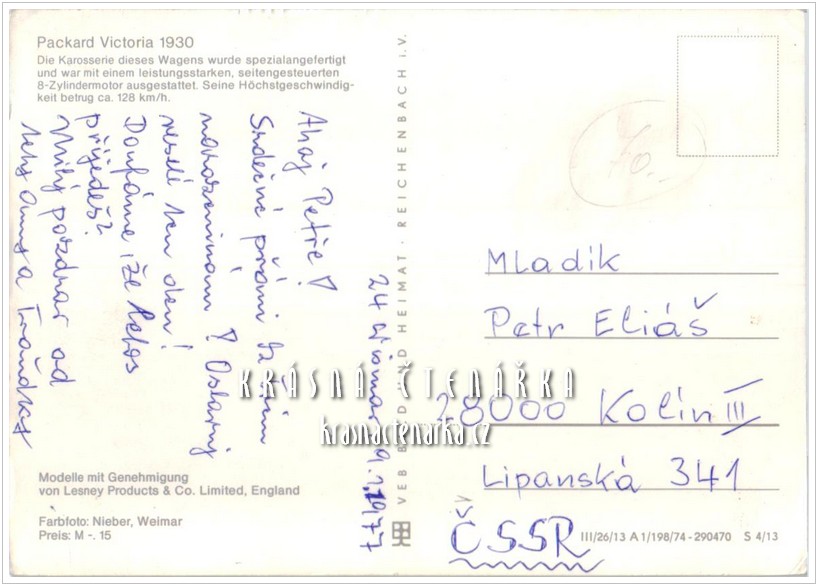 Packard Victoria 1930
Die Karosserie dieses Wagens wurde spezialangefertigt
und war mit einem leistungsstarken, seitengesteuerten
8-Zylindermotor ausgestattet. Seine Höchstgeschwindig-
keit betrug ca. 128 km/h.
Ahoj Petře!
Srdečné přání k Tvým
narozeninám! Oslavuj
vesele ten den!
Doufáme, že letos
přijedeš?
Milý pozdrav od
tety Anny a Fraňdky
1977
Modelle mit Genehmigung
von Lesney Products & Co. Limited, England
Farbfoto: Nieber, Weimar
Preis: M -. 15
VEB BILD UND HEIMAT · REICHENBACH i. V.
Mladík
Petr Eliáš
28000 Kolín III
Lipanská 341
ČSSR
III/26/13 A 1/198/74 - 290470 S 4/13
KRÁSNÁ ČTENÁŘKA
krasnactenarka.cz